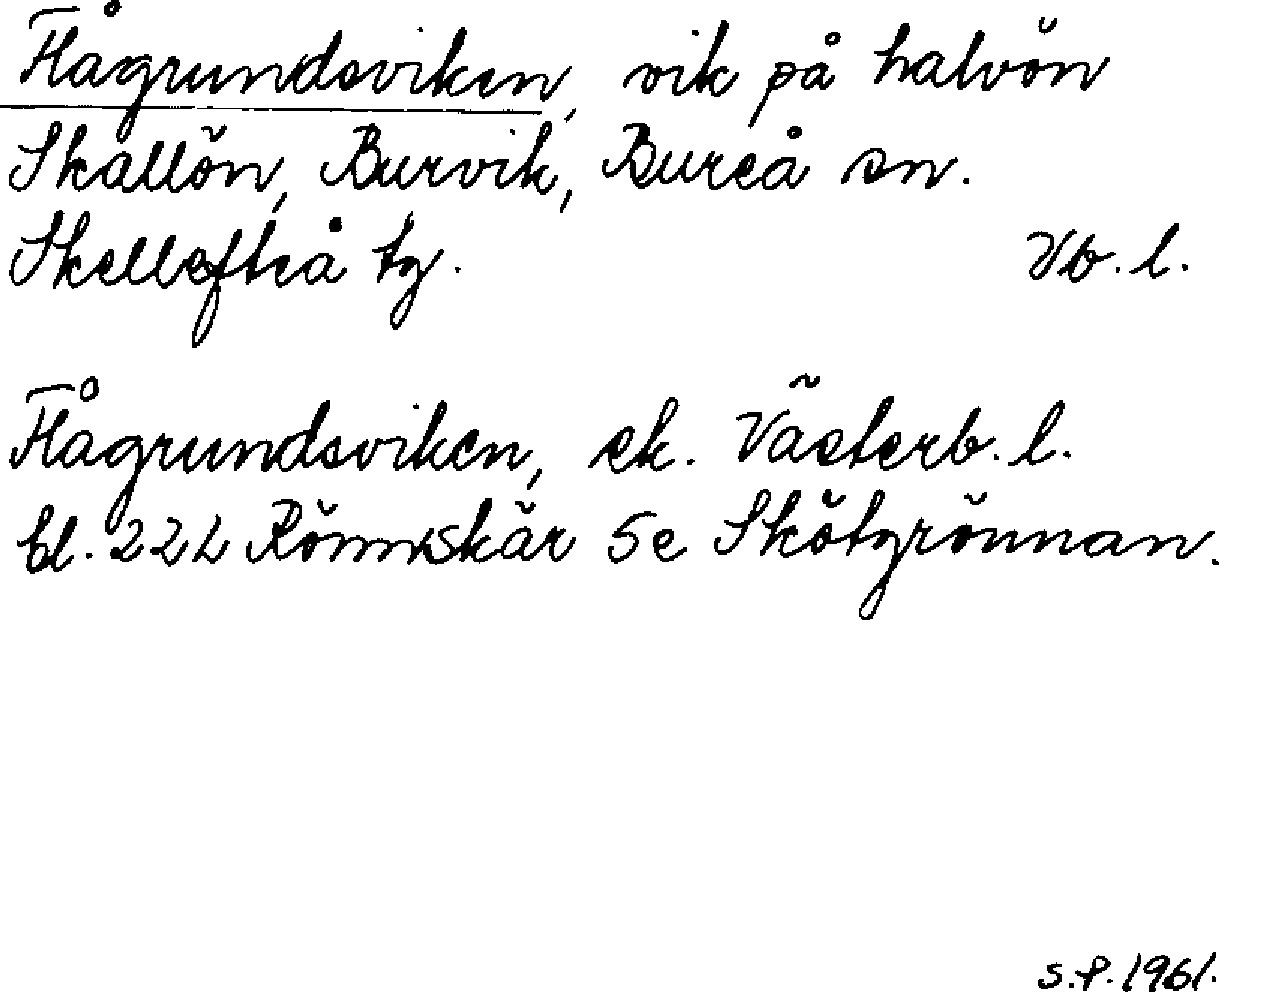 Fågrundsviken, vik på halvön
Skallön, Burvik, Bureå sn.
Skellefteå tg. Vb. l.
Fågrundsviken, ek. Västerb. l.
bl. 222 Rönnskär 5e Skötgrönnan.
S.P. 1961.